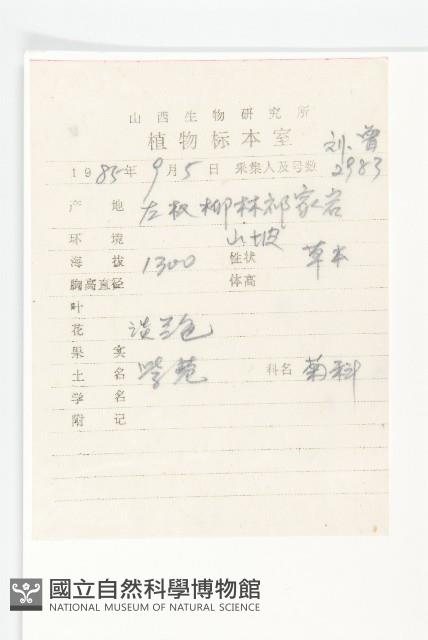 山西生物研究所
植物标本室
刘、曾
1985年9月5日 采集人及号数 2983
产地 左权柳林祁家岩
环境 山坡
海拔 1300 性状 草本
胸高直径 体高
叶
花 淡兰色
果实
土名 紫菀 科名 菊科
学名
附记
國立自然科學博物館
NATIONAL MUSEUM OF NATURAL SCIENCE